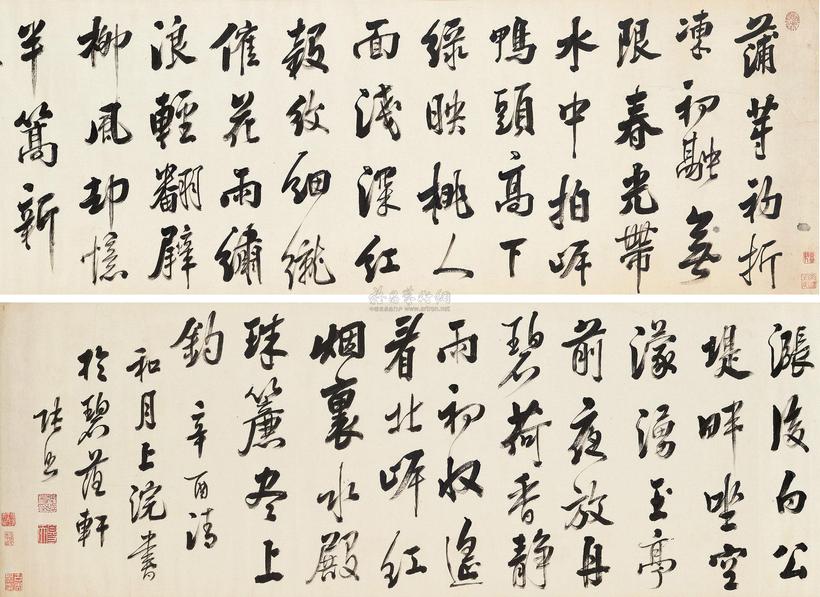 蒲芽初折
凍初融無
限春光帶
水中拍岸
鴨頭高下
綠映桃人
面淺深紅
縠紋細織
催花雨繡
浪輕翻擘
柳風却憶
半篙新
漲後白公
堤畔坐空
濛湧玉亭
前夜放舟
碧荷香靜
雨初收遙
看北岸紅
烟裏水殿
珠簾盡上
鈎 辛酉清
和月上浣書
於碧蔭軒
張照